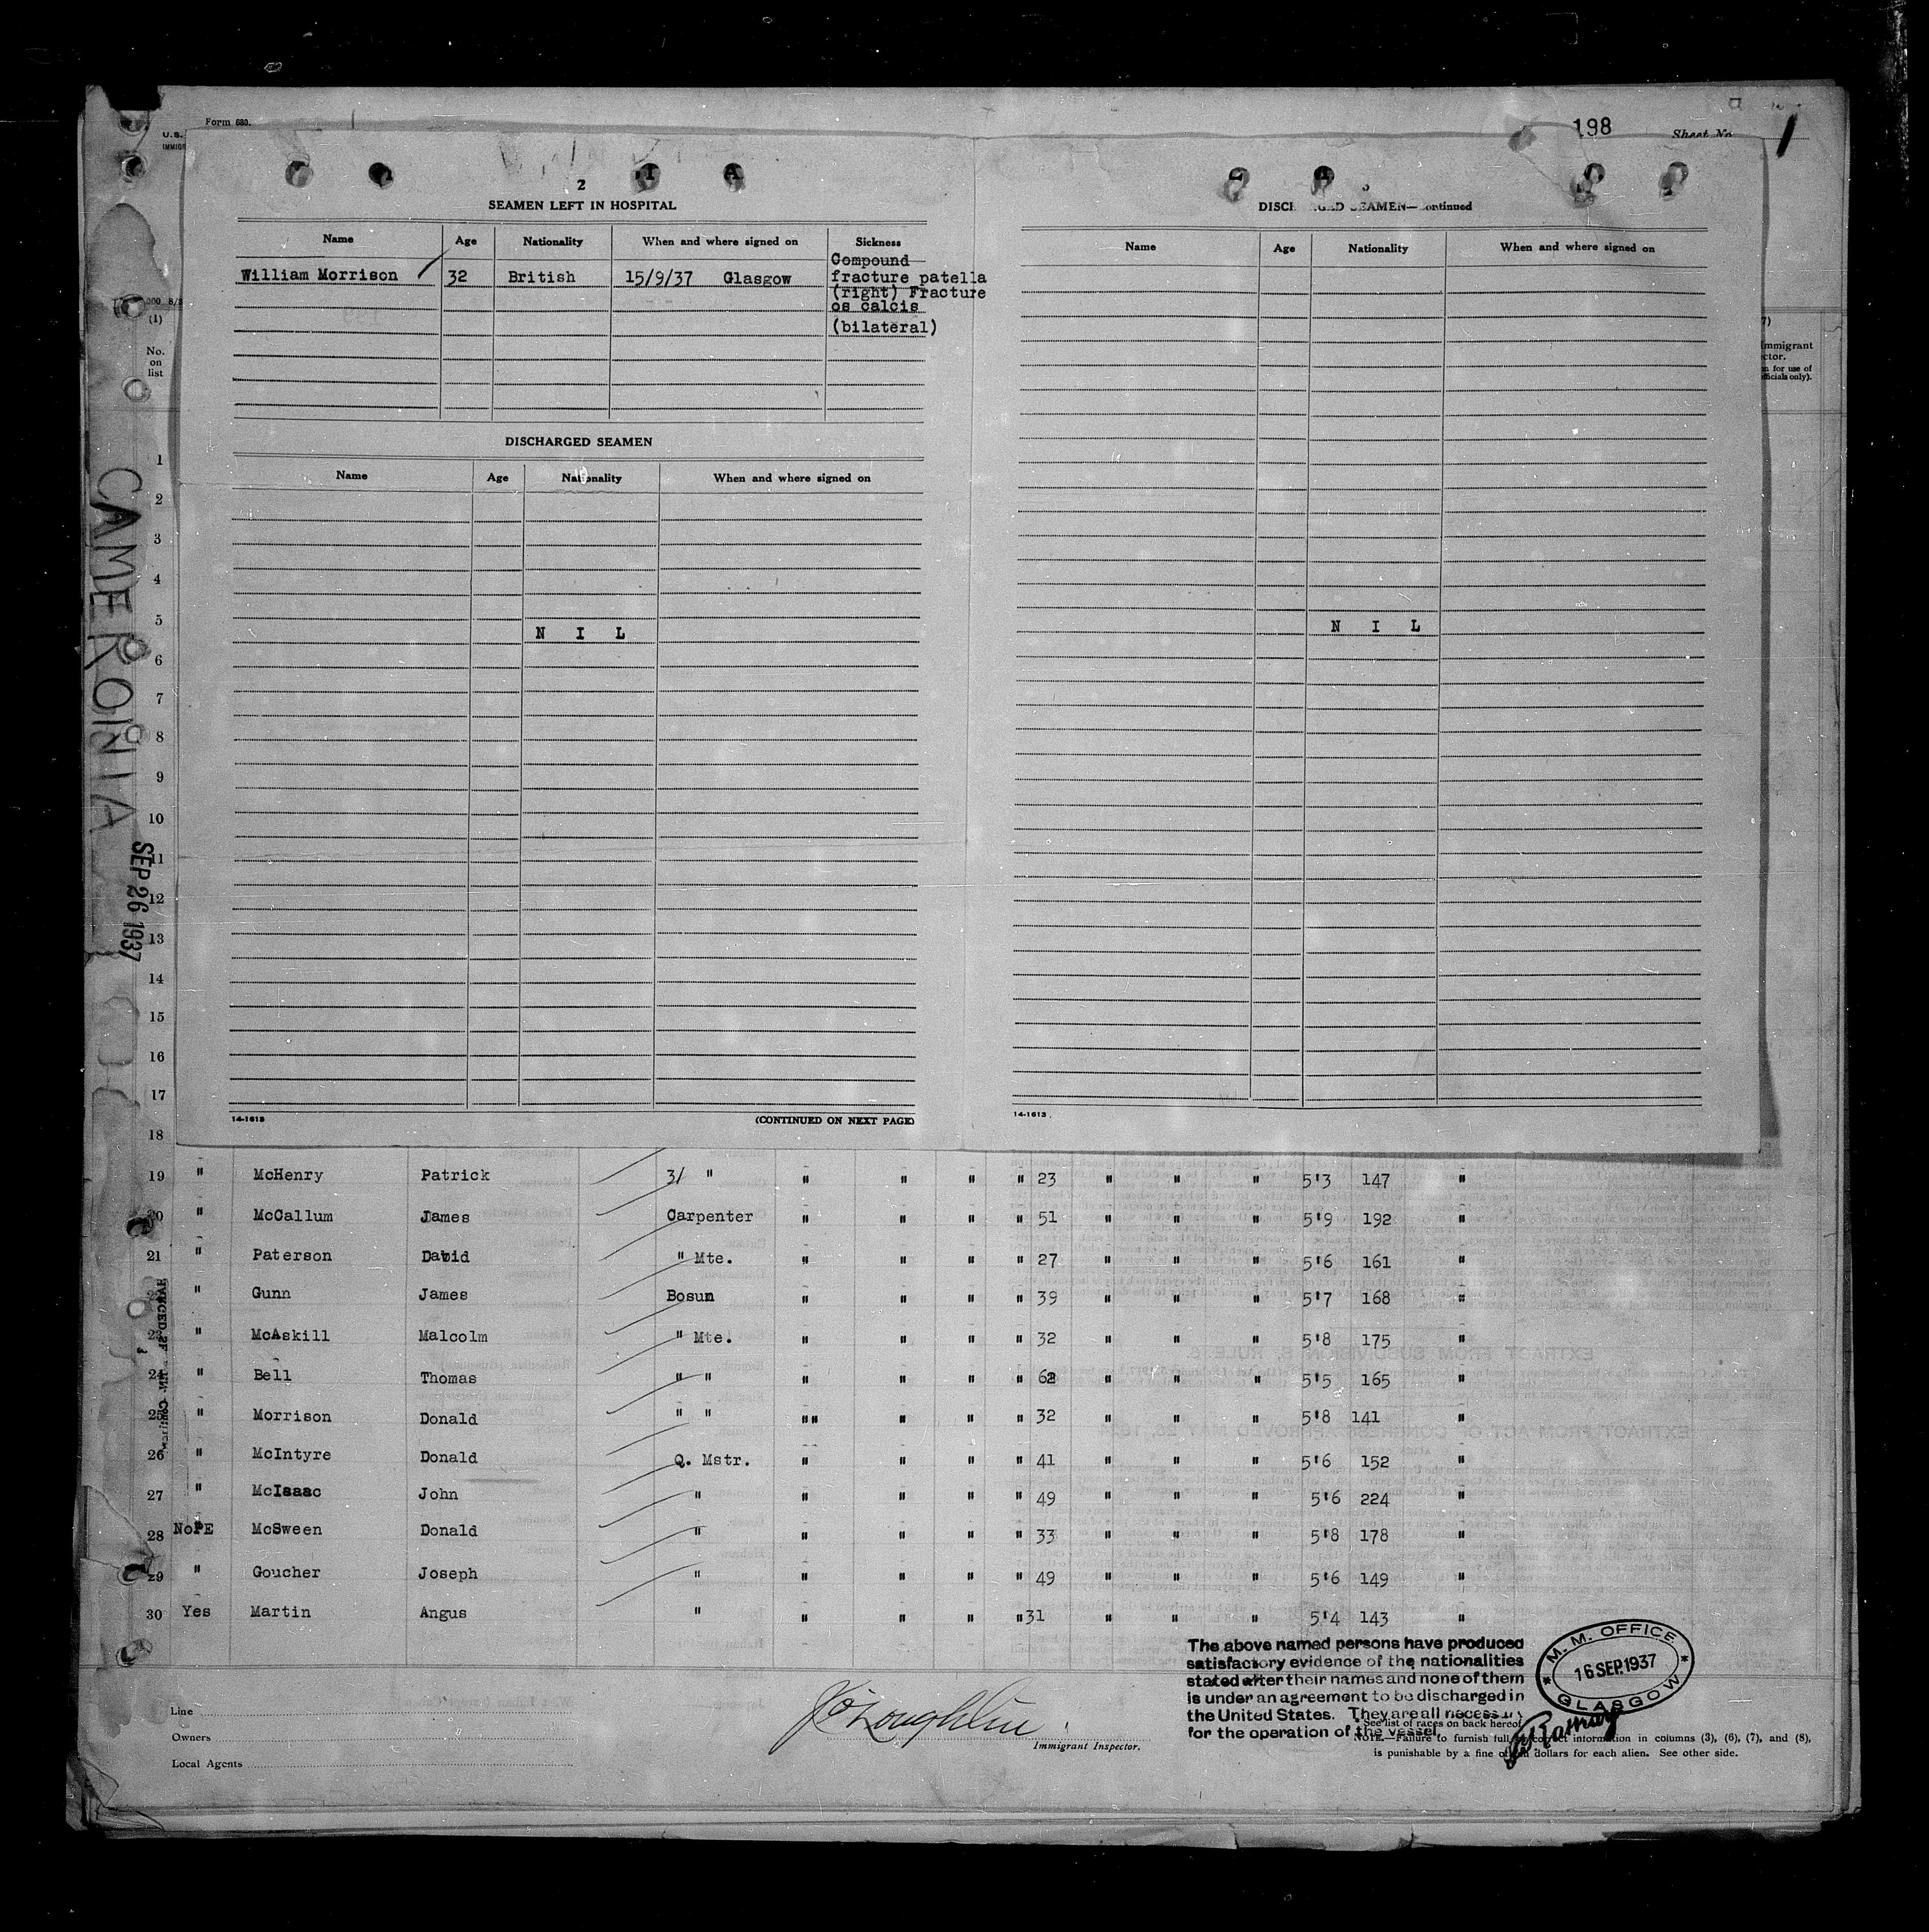 Form 680.
U.S.
198
Sheet No.
1
2
SEAMEN LEFT IN HOSPITAL
Name Age Nationality When and where signed on Sickness
William Morrison 32 British 15/9/37 Glasgow Compound
fracture patella
(right) Fracture
os calcis
(bilateral)
DISCHARGED SEAMEN
Name Age Nationality When and where signed on
N I L
14-1613
(CONTINUED ON NEXT PAGE)
3
DISCHARGED SEAMEN—Continued
Name Age Nationality When and where signed on
N I L
14-1613
(1)
No.
on
list
Immigrant
for use of
officials only).
CAMERONIA
SEP 26 1937
1
2
3
4
5
6
7
8
9
10
11
12
13
14
15
16
17
18
19 " McHenry Patrick 3/ " " " " " 23 " " " 5'3 147 "
20 " McCallum James Carpenter " " " " 51 " " " 5'9 192 "
21 " Paterson David " Mte. " " " " 27 " " " 5'6 161 "
22 " Gunn James Bosun " " " " 39 " " " 5'7 168 "
23 " McAskill Malcolm " Mte. " " " " 32 " " " 5'8 175 "
24 " Bell Thomas " " " " " " " " " 5'5 165 "
25 " Morrison Donald " " "" " " " 32 " " " 5'8 141 "
26 " McIntyre Donald Q. Mstr. " " " " 41 " " " 5'6 152 "
27 " McIsaac John " " " " " 49 " " " 5'6 224 "
28 NoPE McSween Donald " " " " " 33 " " " 5'8 178 "
29 " Goucher Joseph " " " " " 49 " " " 5'6 149 "
30 Yes Martin Angus " " " " " 31 " " " 5'4 143 "
The above named persons have produced
satisfactory evidence of the nationalities
stated after their names and none of them
is under an agreement to be discharged in
the United States. They are all necessary
for the operation of the vessel.
M. M. OFFICE
16 SEP. 1937
GLASGOW
Line
Owners
Local Agents
Immigrant Inspector.
* See list of races on back hereof.
NOTE.—Failure to furnish full or correct information in columns (3), (6), (7), and (8),
is punishable by a fine of ten dollars for each alien. See other side.
EXTRACT FROM SUBDIVISION B, RULE 6.
EXTRACT FROM ACT OF CONGRESS APPROVED MAY 26, 1924